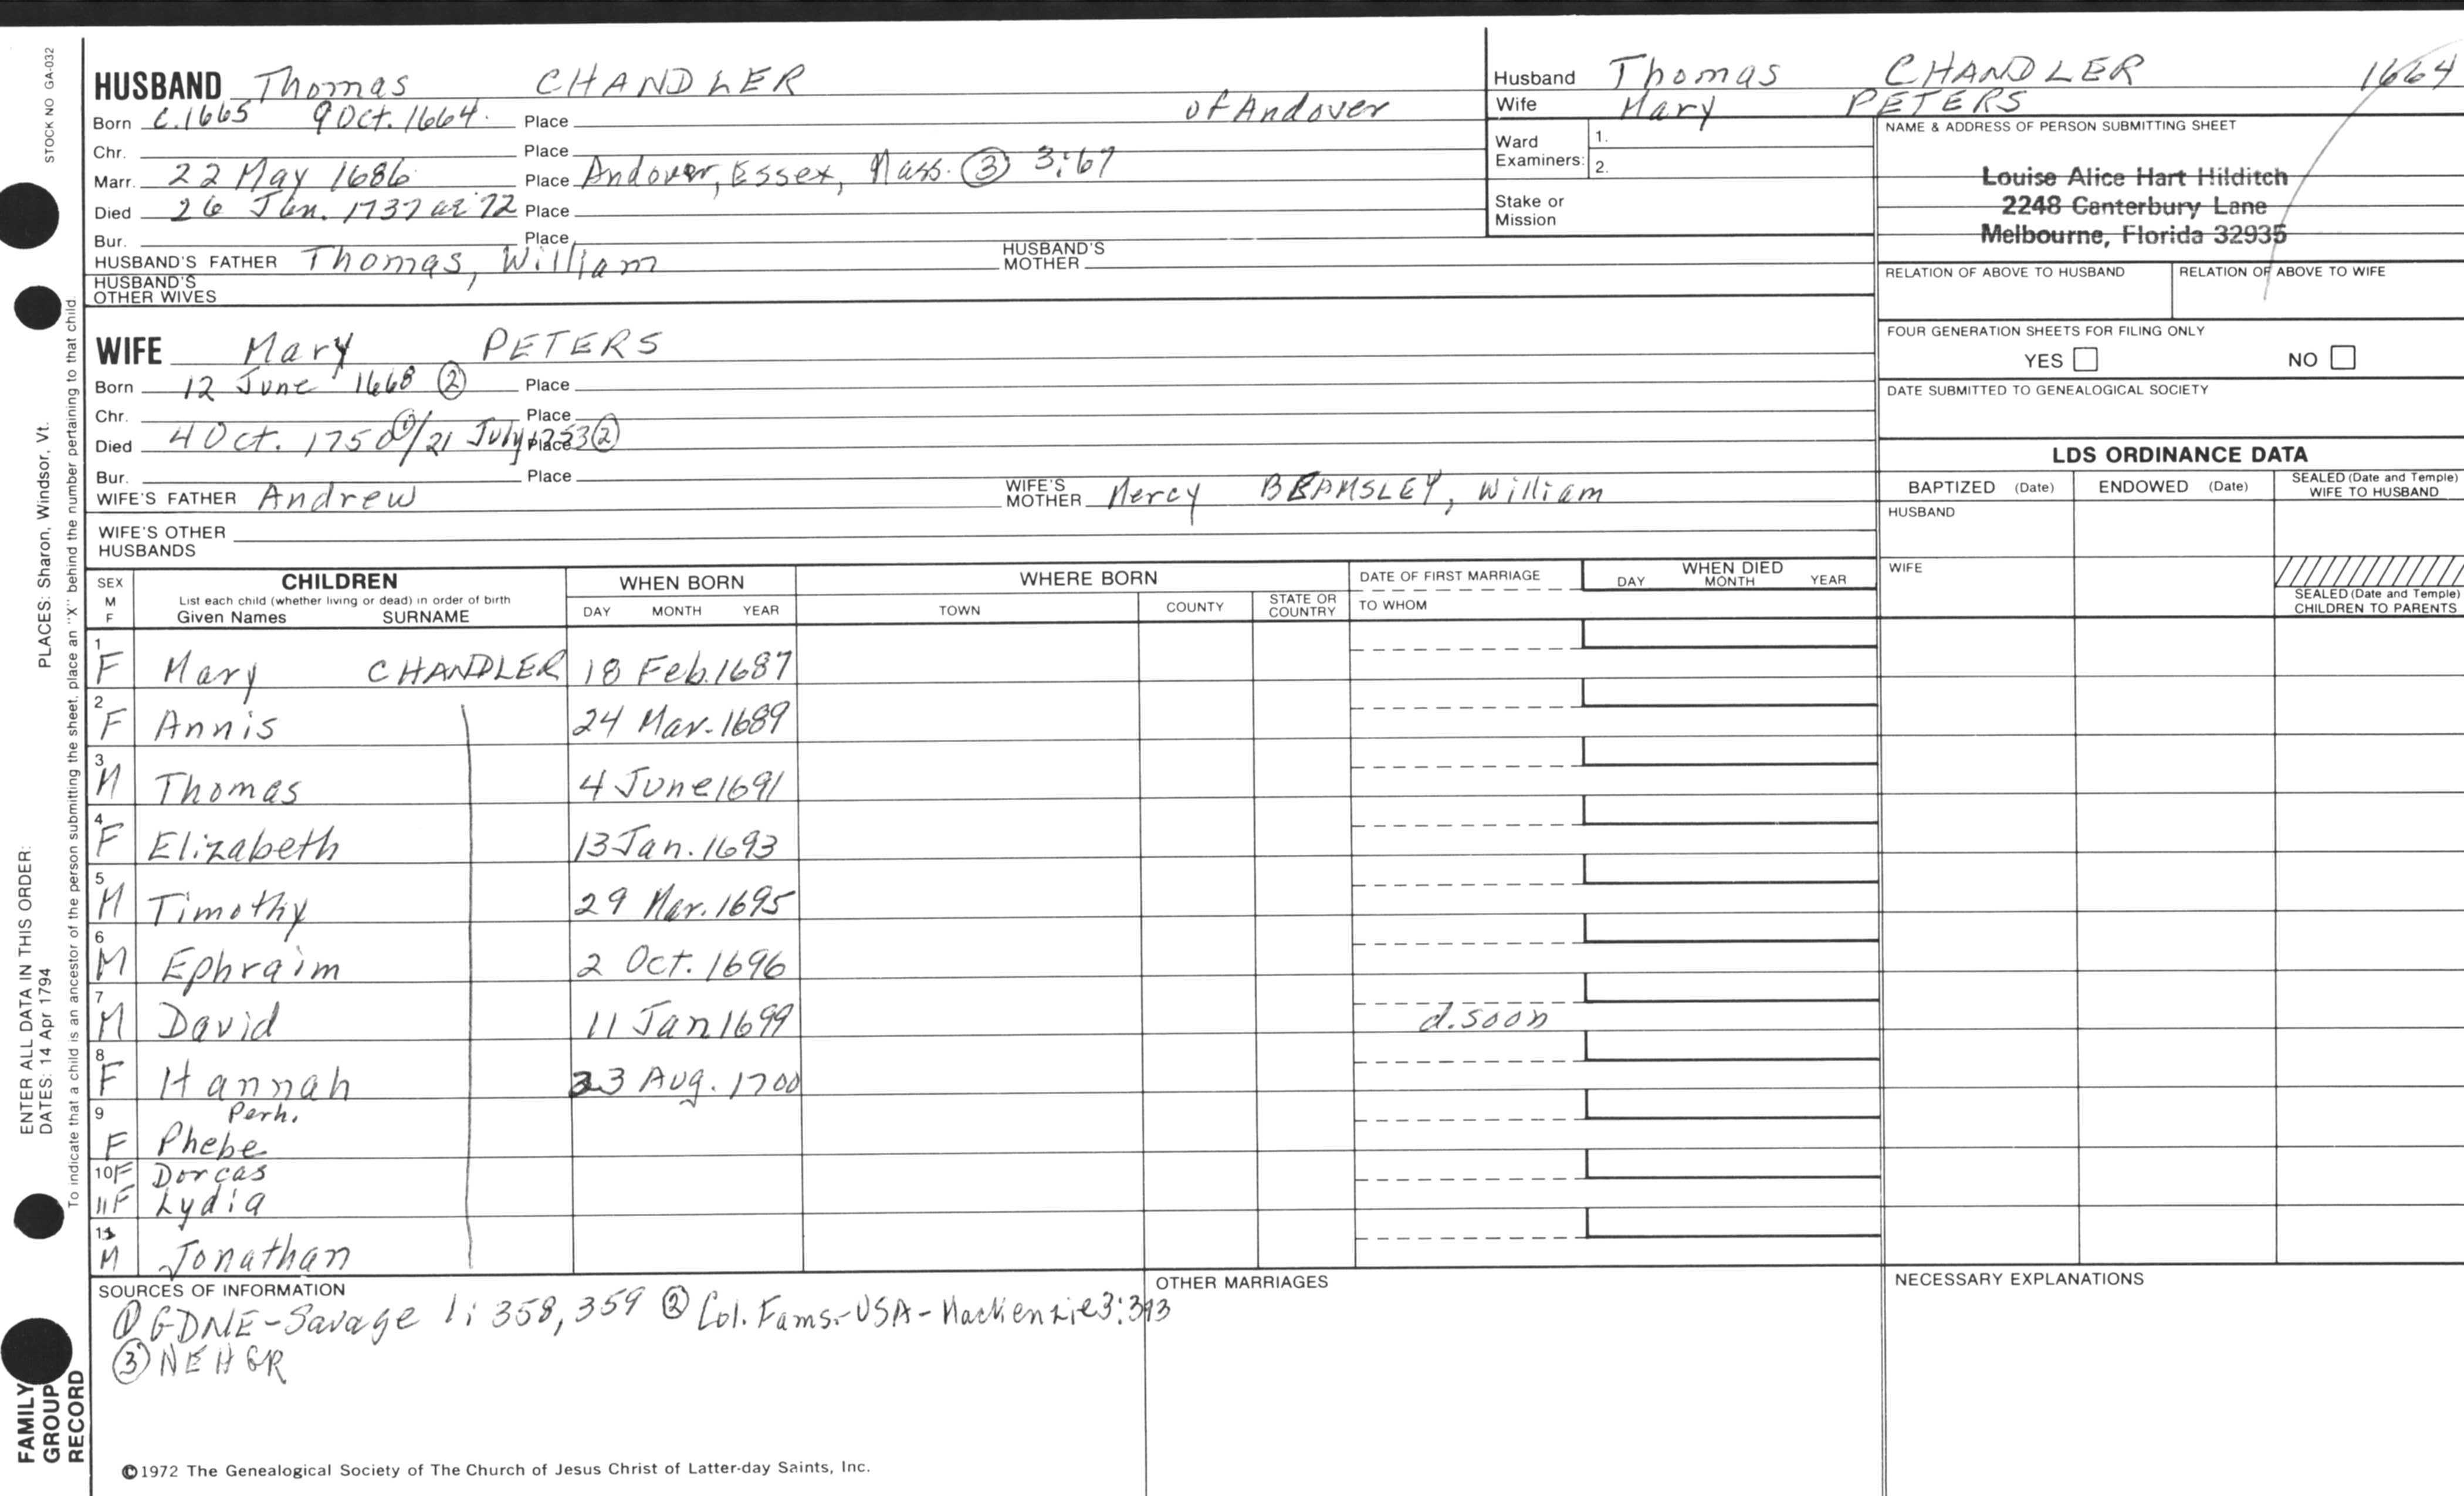 STOCK NO GA-032
HUSBAND Thomas CHANDLER
Born c.1665 9 Oct. 1664. Place of Andover
Chr. Place
Marr. 22 May 1686 Place Andover, Essex, Mass. ③ 3:67
Died 26 Jan. 1737 ae 72 Place
Bur. Place
HUSBAND'S FATHER Thomas, William HUSBAND'S MOTHER
HUSBAND'S OTHER WIVES
Husband Thomas CHANDLER 1664
Wife Mary PETERS
Ward Examiners: 1.
2.
Stake or Mission
NAME & ADDRESS OF PERSON SUBMITTING SHEET
Louise Alice Hart Hilditch
2248 Canterbury Lane
Melbourne, Florida 32935
RELATION OF ABOVE TO HUSBAND RELATION OF ABOVE TO WIFE
FOUR GENERATION SHEETS FOR FILING ONLY
YES NO
DATE SUBMITTED TO GENEALOGICAL SOCIETY
WIFE Mary PETERS
Born 12 June 1668 ② Place
Chr. Place
Died 4 Oct. 1750 ①/21 July 1753 ② Place
Bur. Place
WIFE'S FATHER Andrew WIFE'S MOTHER Mercy BEAMSLEY, William
WIFE'S OTHER HUSBANDS
LDS ORDINANCE DATA
BAPTIZED (Date) ENDOWED (Date) SEALED (Date and Temple) WIFE TO HUSBAND
HUSBAND
WIFE
SEALED (Date and Temple) CHILDREN TO PARENTS
SEX M F
CHILDREN
List each child (whether living or dead) in order of birth
Given Names SURNAME
WHEN BORN
DAY MONTH YEAR
WHERE BORN
TOWN COUNTY STATE OR COUNTRY
DATE OF FIRST MARRIAGE
TO WHOM
WHEN DIED
DAY MONTH YEAR
1 F Mary CHANDLER 18 Feb. 1687
2 F Annis 24 Mar. 1689
3 M Thomas 4 June 1691
4 F Elizabeth 13 Jan. 1693
5 M Timothy 29 Mar. 1695
6 M Ephraim 2 Oct. 1696
7 M David 11 Jan 1699 d. soon
8 F Hannah 23 Aug. 1700
Perh.
9 F Phebe
10 F Dorcas
11 F Lydia
M Jonathan
SOURCES OF INFORMATION
① GDNE-Savage 1: 358, 359 ② Col. Fams.-USA-MacKenzie 3:393
③ NEHGR
OTHER MARRIAGES
NECESSARY EXPLANATIONS
©1972 The Genealogical Society of The Church of Jesus Christ of Latter-day Saints, Inc.
ENTER ALL DATA IN THIS ORDER:
DATES: 14 Apr 1794 PLACES: Sharon, Windsor, Vt.
To indicate that a child is an ancestor of the person submitting the sheet, place an "X" behind the number pertaining to that child.
FAMILY GROUP RECORD